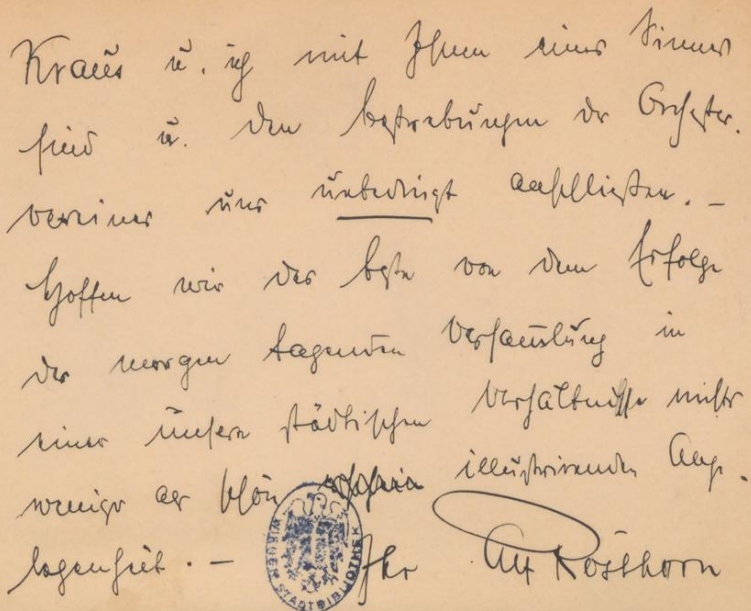 Kraus u. ich mit Ihnen eines Sinnes
sind u. den Bestrebungen des Orchester-
vereines uns unbedingt anschließen. –
Hoffen wir das beste von dem Erfolge
der morgen tagenden Versammlung in
einer unsere städtischen Verhältnisse nichts
weniger als schön illustrirenden Ange-
legenheit. – Ihr Alf Rosthorn
WIENER STADTBIBLIOTHEK